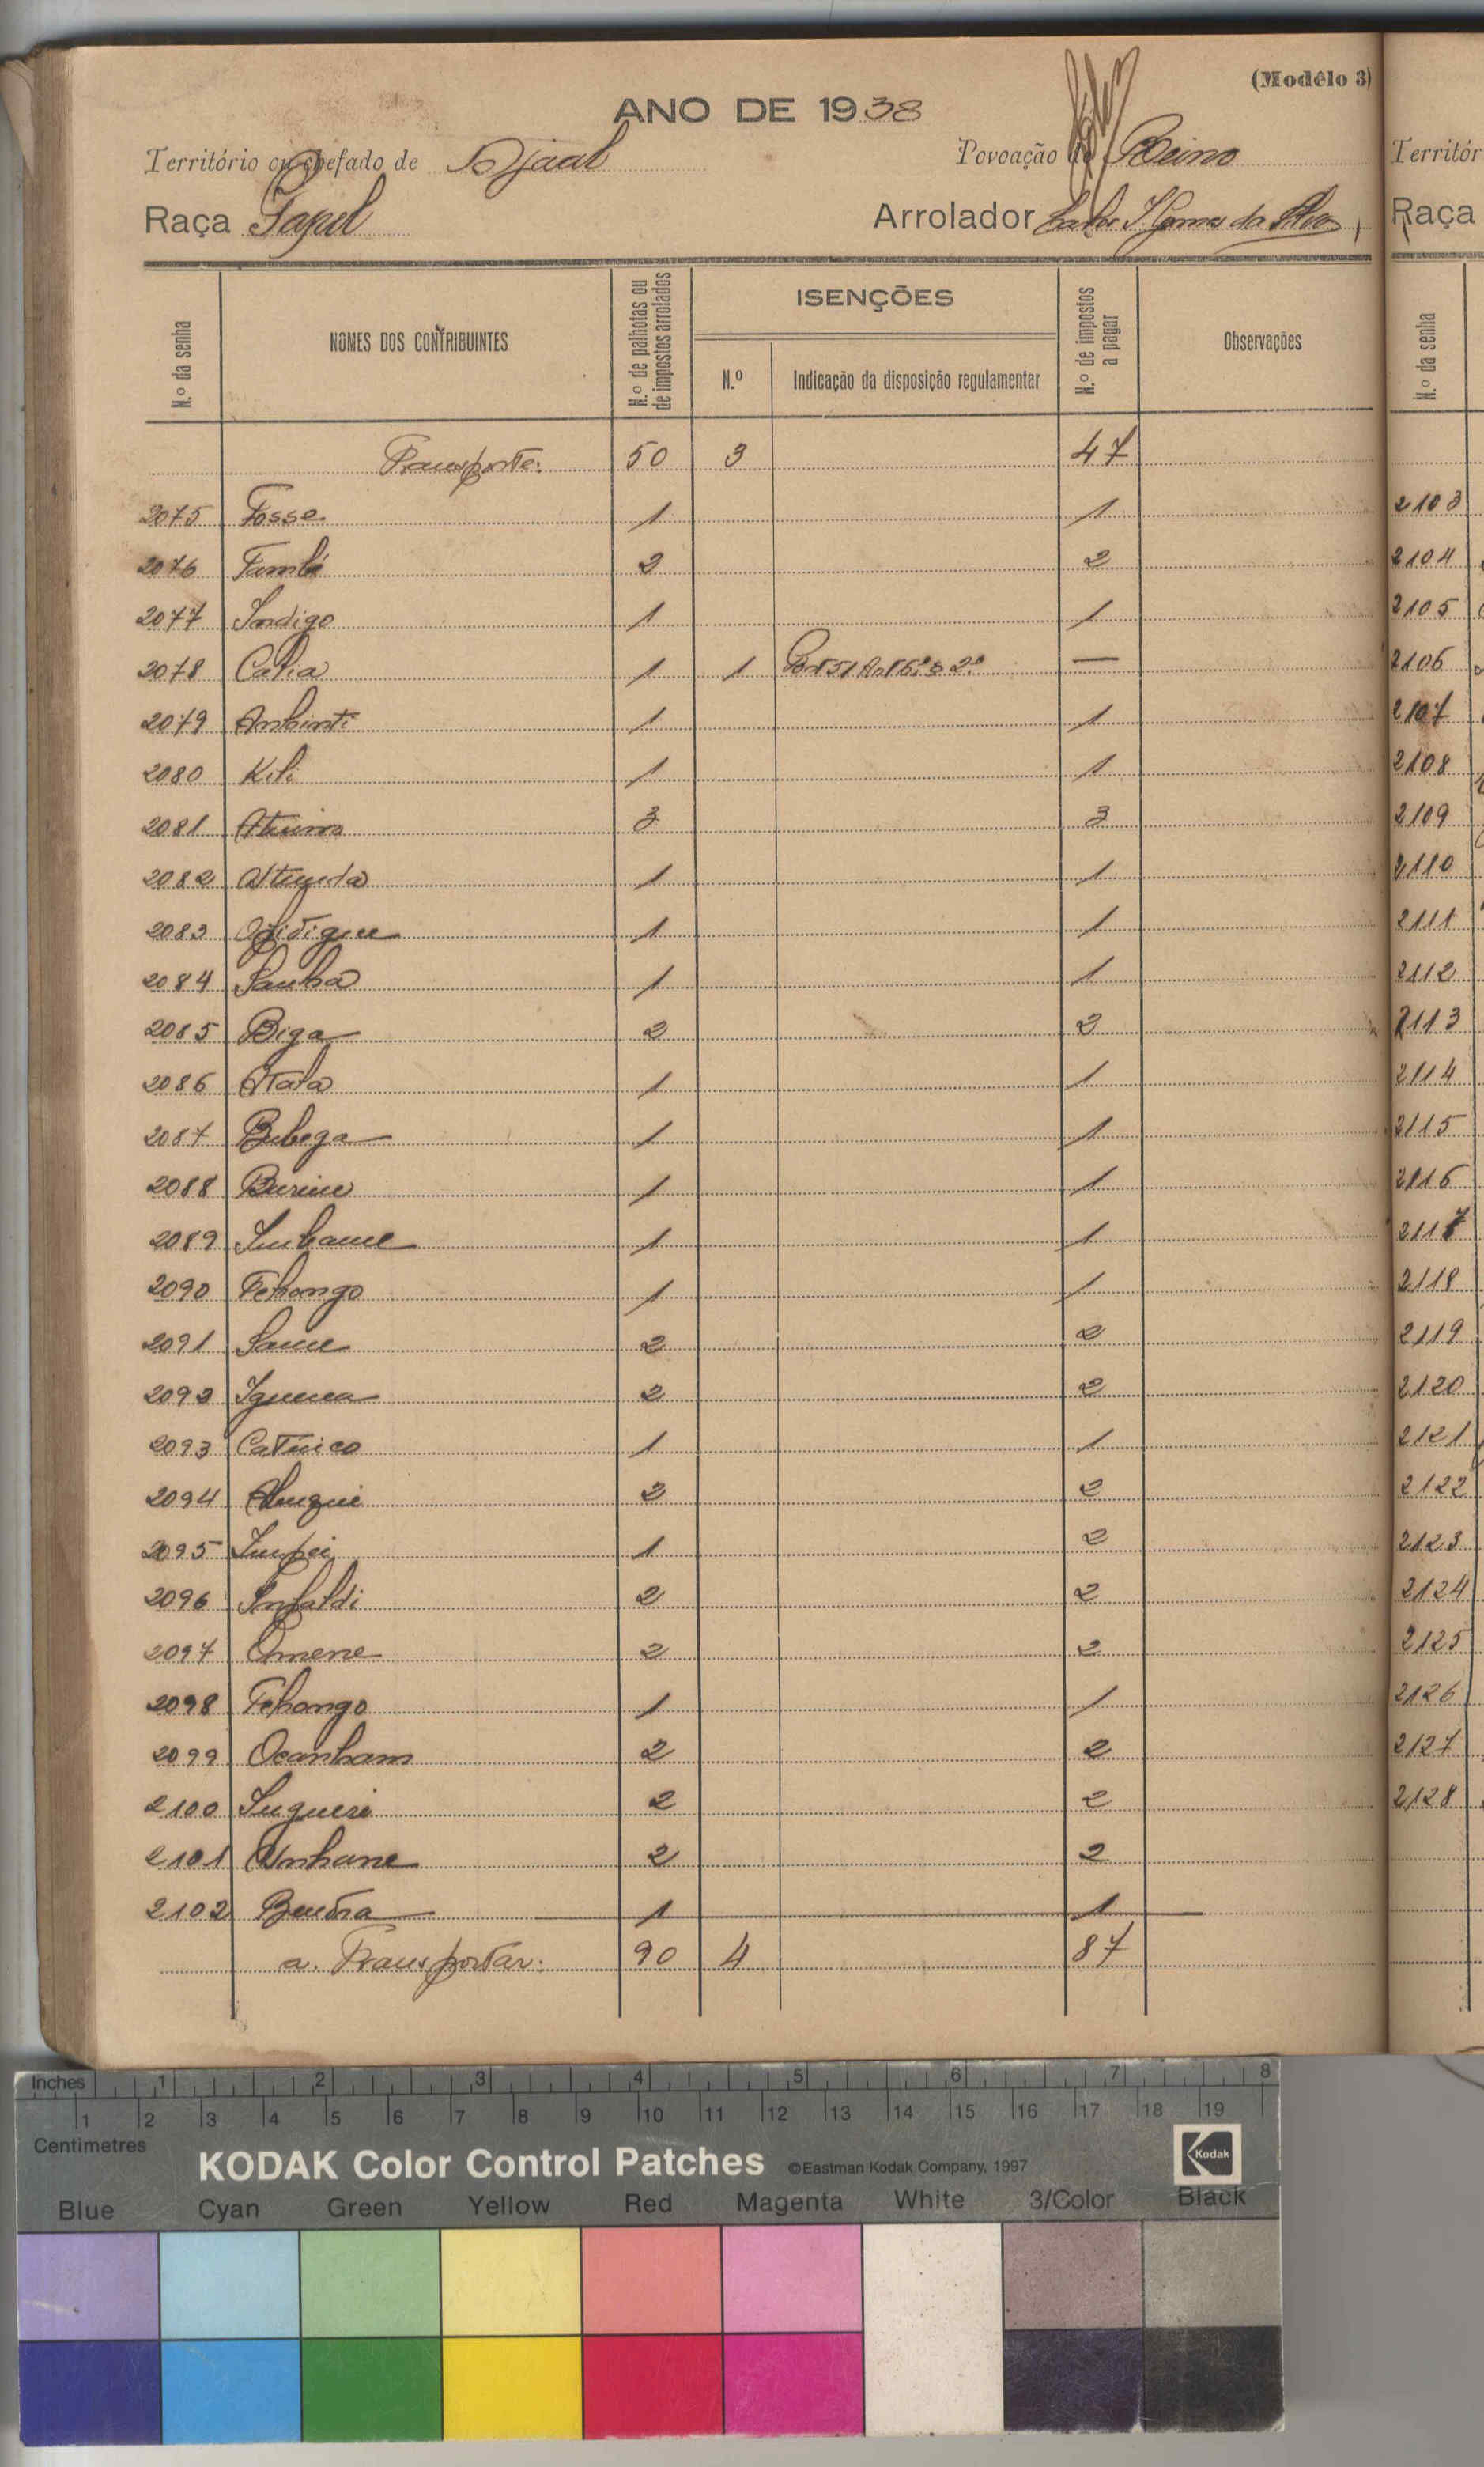 (Modêlo 3)
ANO DE 1938
Território ou chefado de Djaal Povoação de Reino
Raça Papel Arrolador Gomes da Silva
N.º da senha NOMES DOS CONTRIBUINTES N.º de palhotas ou de impostos arrolados ISENÇÕES N.º Indicação da disposição regulamentar N.º de impostos a pagar Observações
Transporte: 50 3 47
2075 Fosse 1 1
2076 També 2 2
2077 Indigo 1 1
2078 Catia 1 1 —
2079 Anhinti 1 1
2080 Kili 1 1
2081 3 3
2082 1 1
2083 1 1
2084 Sanha 1 1
2085 Biga 2 2
2086 Atala 1 1
2087 Bubega 1 1
2088 Burine 1 1
2089 Imbame 1 1
2090 Tchongo 1 1
2091 Same 2 2
2092 2 2
2093 Catuico 1 1
2094 2 2
2095 1 2
2096 Infaldi 2 2
2097 Omene 2 2
2098 Tchongo 1 1
2099 Ocanham 2 2
2100 Sugueri 2 2
2101 Unhane 2 2
2102 1 1
a Transportar: 90 4 87
Territór
Raça
N.º da senha
2103
2104
2105
2106
2107
2108
2109
2110
2111
2112
2113
2114
2115
2116
2117
2118
2119
2120
2121
2122
2123
2124
2125
2126
2127
2128
Inches 1 2 3 4 5 6 7 8
1 2 3 4 5 6 7 8 9 10 11 12 13 14 15 16 17 18 19
Centimetres
KODAK Color Control Patches ©Eastman Kodak Company, 1997 Kodak
Blue Cyan Green Yellow Red Magenta White 3/Color Black